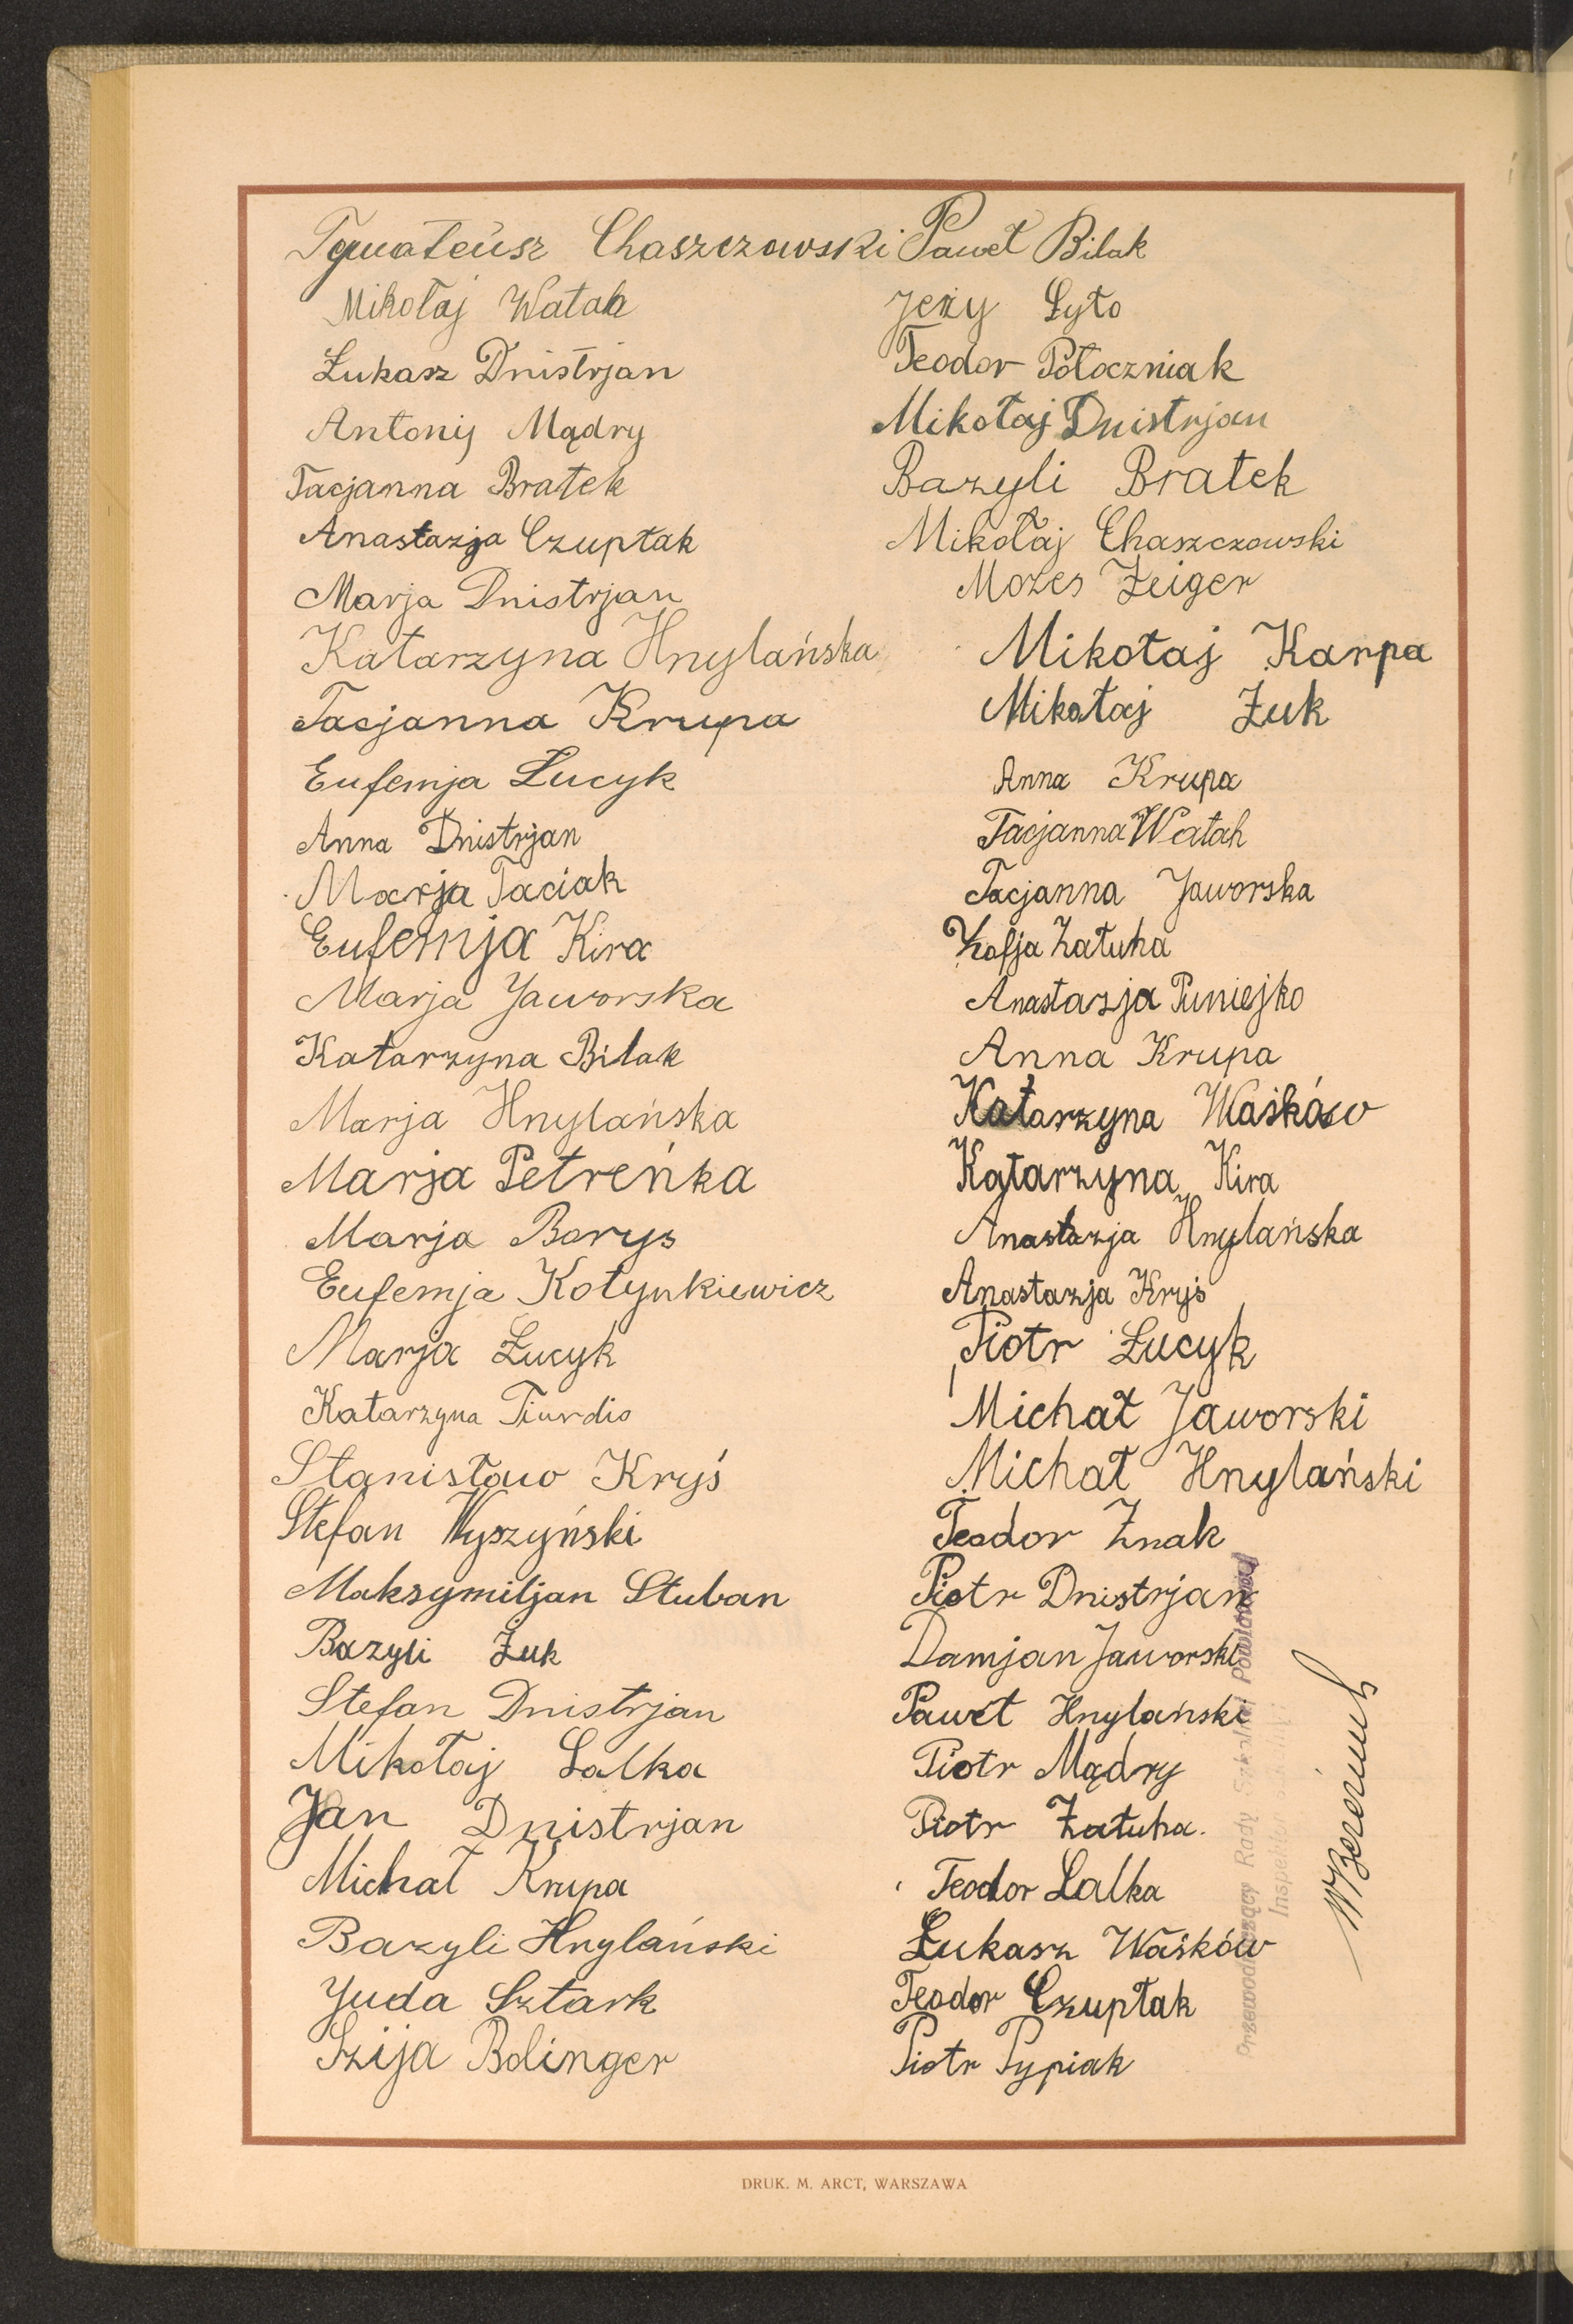 Ignateusz Chaszczowski
Mikołaj Watah
Łukasz Dnistrjan
Antonij Mądry
Tacjanna Bratek
Anastazja Czuptak
Marja Dnistrjan
Katarzyna Hnylańska
Tacjanna Krupa
Eufemja Łucyk
Anna Dnistrjan
Marja Taciak
Eufemja Kira
Marja Jaworska
Katarzyna Bilak
Marja Hnylańska
Marja Petreńka
Marja Borys
Eufemja Kotynkiewicz
Marja Łucyk
Katarzyna Tiurdio
Stanisław Kryś
Stefan Wyszyński
Maksymiljan Stuban
Bazyli Żuk
Stefan Dnistrjan
Mikołaj Lalka
Jan Dnistrjan
Michał Krupa
Bazyli Hnylański
Juda Sztark
Szija Bolinger
Paweł Bilak
Jeży Łyto
Teodor Potoczniak
Mikołaj Dnistrjan
Bazyli Bratek
Mikołaj Chaszczowski
Mozes Zeiger
Mikołaj Karpa
Mikołaj Żuk
Anna Krupa
Tacjanna Watah
Tacjanna Jaworska
Zofja Załuha
Anastazja Puniejko
Anna Krupa
Katarzyna Waśków
Katarzyna Kira
Anastazja Hnylańska
Anastazja Kryś
Piotr Łucyk
Michał Jaworski
Michał Hnylański
Teodor Znak
Piotr Dnistrjan
Damjan Jaworski
Paweł Hnylański
Piotr Mądry
Piotr Załuha.
Teodor Lalka
Łukasz Waśków
Teodor Czuptak
Piotr Pypiak
Przewodniczący Rady Szkolnej Powiatowej
Inspektor
DRUK. M. ARCT, WARSZAWA